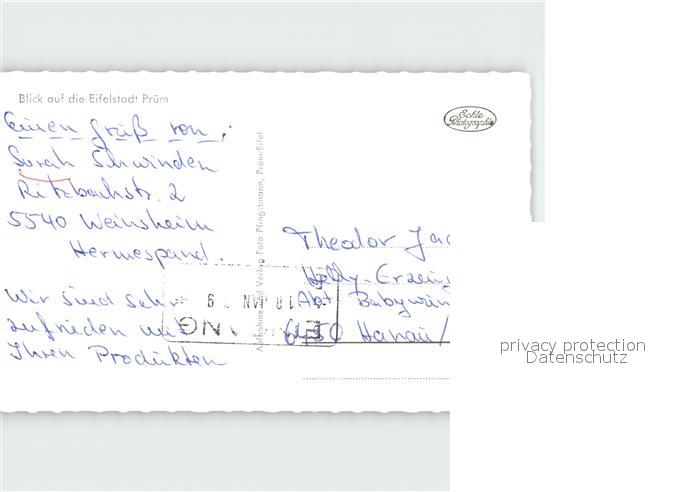 Blick auf die Eifelstadt Prüm
Echte Photographie
Einen Gruß von:
Sarah Schwinden
Ritzbachstr. 2
5540 Weinsheim
Hermespand.
Wir sind sehr
zufrieden mit
Ihren Produkten
Aufnahme und Verlag Foto Pfingstmann, Prüm/Eifel
Theodor Jac
Abt Babywin
6450 Hanau/
18. JAN. 9
privacy protection
Datenschutz